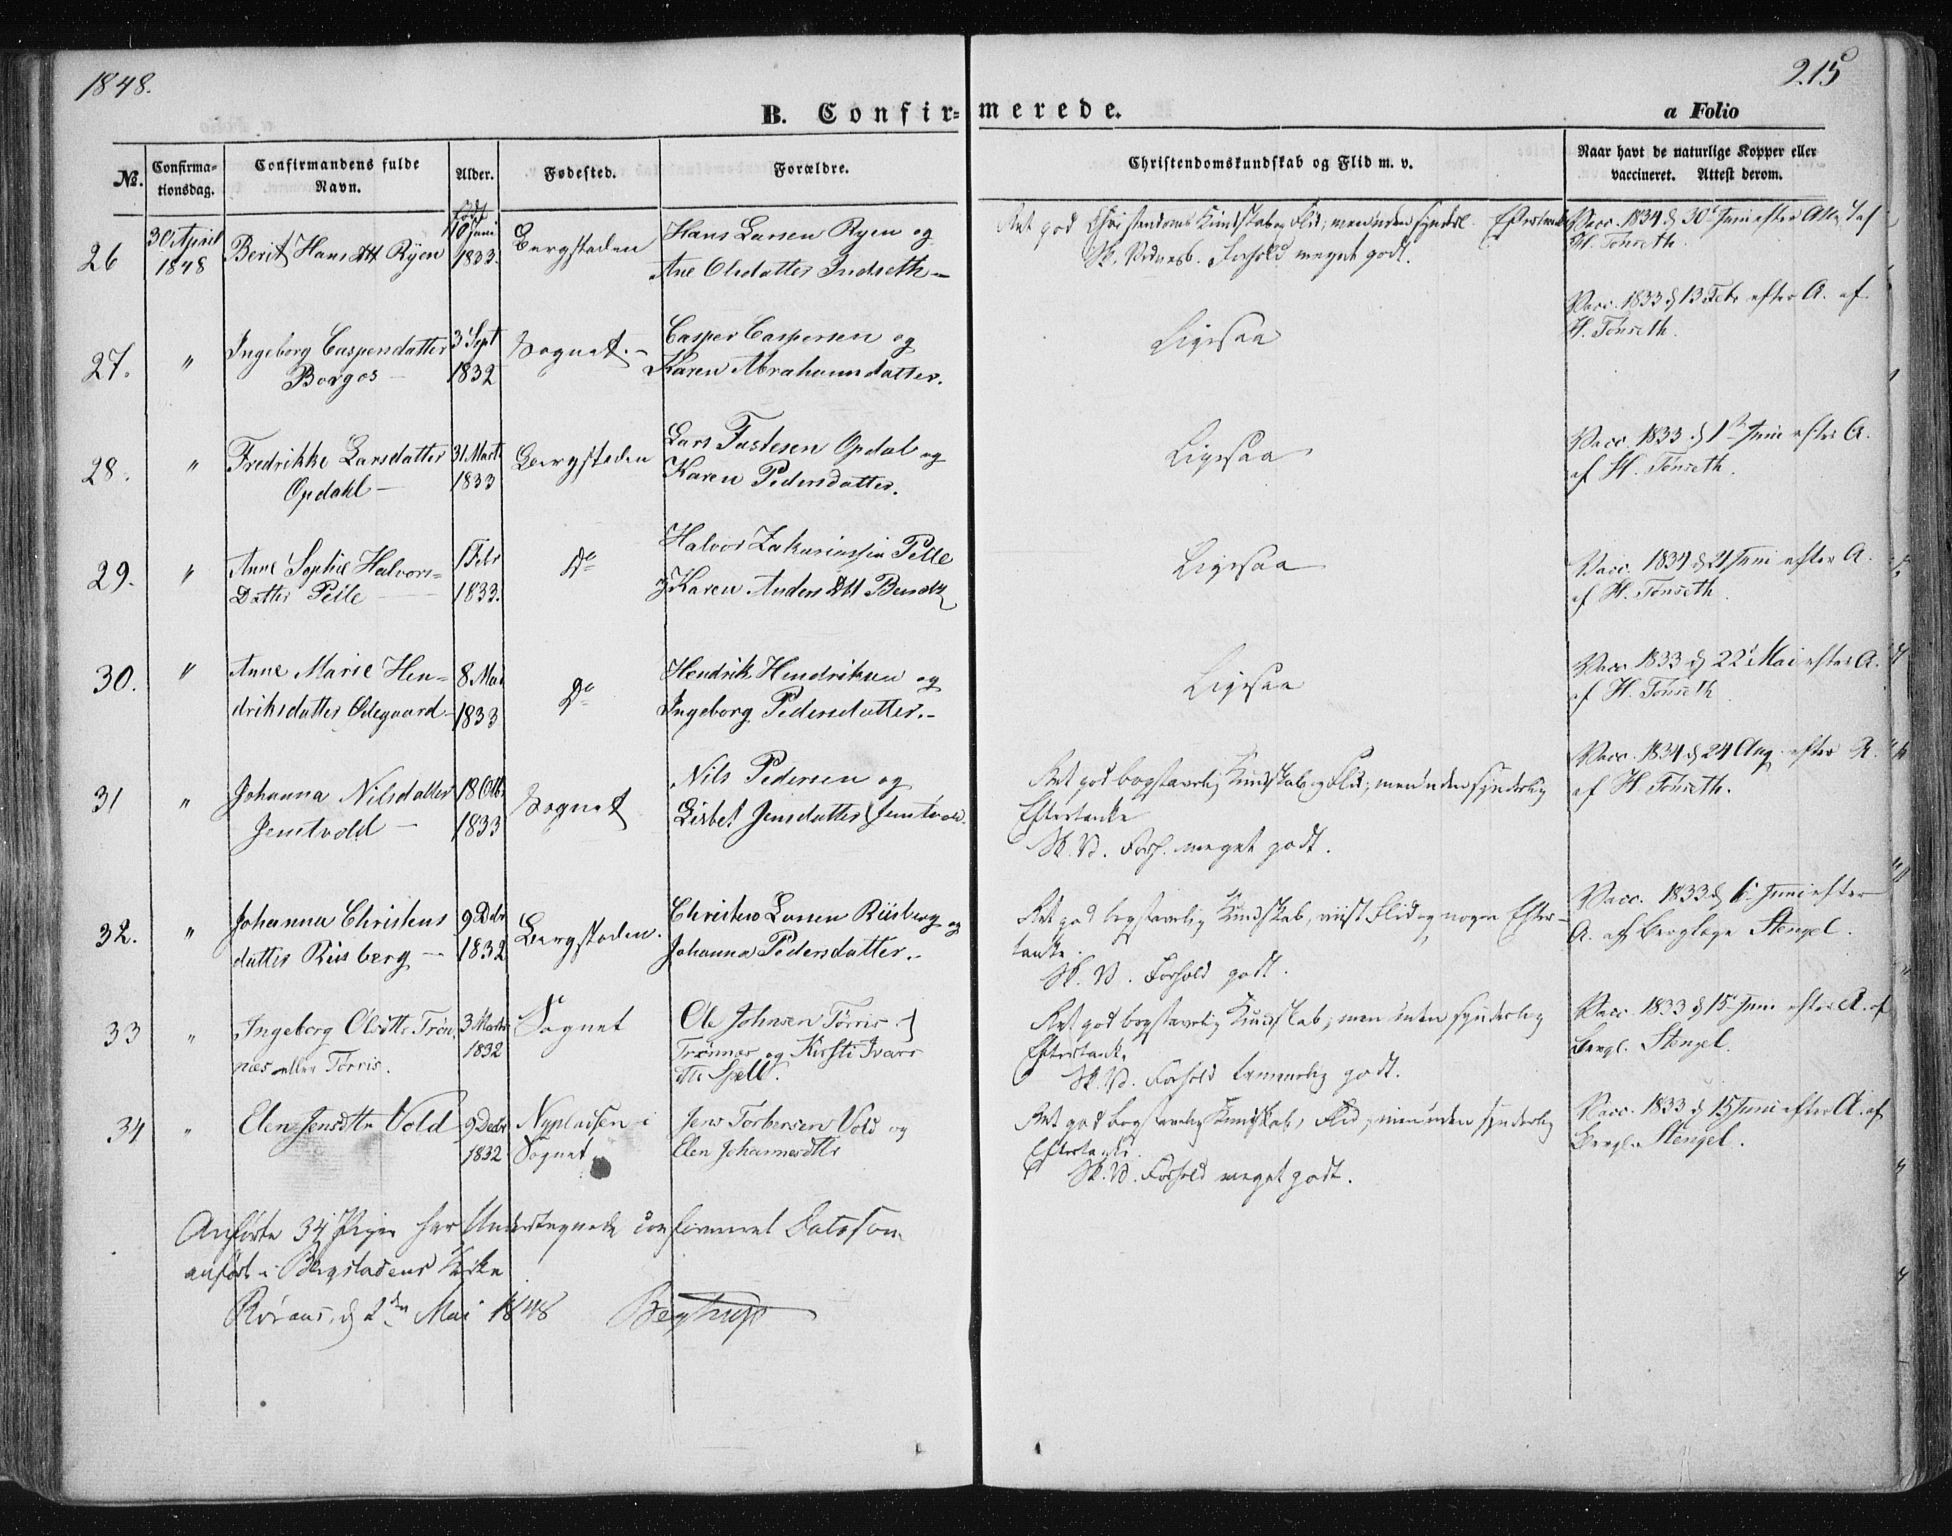 1848.
215
B. Confir=
merede.
a Folio
No.
Confirma-
tionsdag.
Confirmandens fulde
Navn.
Alder.
Fødested.
Forældre.
Christendomskundskab og Flid m. v.
Naar havt de naturlige Kopper eller
vaccineret. Attest derom.
26
30 April
1848
Berit Hans Dtt Ryen
født
10 Juni
1833.
Bergstaden
Hans Larsen Ryen og
Ane Olsdatter Indseth
Ret god Christendoms Kundskab og Flid; men uden synderl. Eftertanke
Sk. Vednesb. Forhold meget godt.
Vacc. 1834 d 30 Juni efter Att. af
H. Tønseth.
27.
"
Ingeborg Caspersdatter
Borgos
3 Sept
1832
Sognet.
Casper Caspersen og
Karen Abrahamsdatter.
Ligesaa
Vacc. 1833 d 13 Febr efter A. af
H. Tønseth.
28.
"
Fredrikke Larsdatter
Opdahl
31. Marts
1833
Bergstaden
Lars Fastesen Opdal og
Karen Pedersdatter.
Ligesaa
Vacc. 1833 d 1 Juni efter A.
af H. Tønseth.
29.
"
Anne Sophie Halvors=
Datter Peile
1 Febr
1833.
Do
Halvor Zakariassen Pelle
og Karen Anders Dtt
Ligesaa
Vacc. 1834 d 21 Juni efter A.
af H. Tønseth
30.
"
Anne Marie Hen=
driksdatter Ødegaard.
8 Mai
1833
Do
Hendrik Hendriksen og
Ingeborg Pedersdatter.
Ligesaa
Vacc. 1833 d 22 Mai efter A.
af H. Tønseth
31
"
Johanna Nilsdatter
Jemtvold
18 Octb
1833
Sognet
Nils Pedersen og
Lisbet Jensdatter Jemtvold.
Ret god bogstavelig Kundskab og Flid; men uden synderlig
Eftertanke
Sk. V. Forh. meget godt.
Vacc. 1834 d 24 Aug. efter A.
af H. Tønseth.
32.
"
Johanna Christens
datter Riisberg
9 Debr
1832
Bergstaden.
Christen Larsen Riisberg og
Johanna Pedersdatter.
Ret god bogstavelig Kundskab, viist Flid og nogen Efter-
tanke.
Sk. V. Forhold godt.
Vacc. 1833 d 6 Juni efter
A. af Berglæge Stengel.
33
"
Ingeborg Olsdttr Trøn
næs eller Tørris.
3 Marts
1832
Sognet
Ole Johnsen Tørris
Trønnæs og Kirsti Ivars
dtr Spell.
Ret god bogstavelig Kundskab; men uden synderlig
Eftertanke
Sk. V. Forhold temmelig godt.
Vacc. 1833 d 15 Juni efter A. af
Bergl. Stengel.
34
"
Elen Jensdttr Vold
9 Decbr
1832
Nypladsen i
Sognet
Jens Torbersen Vold og
Elen Johannesdttr
Ret god bogstavelig Kundskab, Flid; men uden synderlig
Eftertanke.
Sk. V. Forhold meget godt.
Vacc. 1833 d 15 Juni efter A. af
Bergl. Stengel.
Anførte 34 Piger har Undertegnede confirmeret
anført i Bergstadens Kirke
Røraas, d 2den Mai 1848
Bentrup